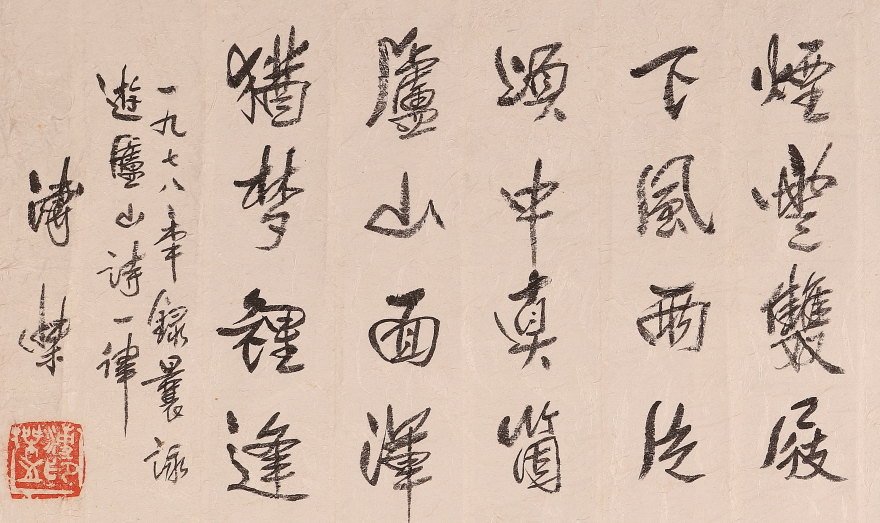 煙巒雙屐
下風雨片
頃中真箇
廬山面渾
猶夢裡逢
一九七八年錄曩詠
遊廬山詩一律
溥傑